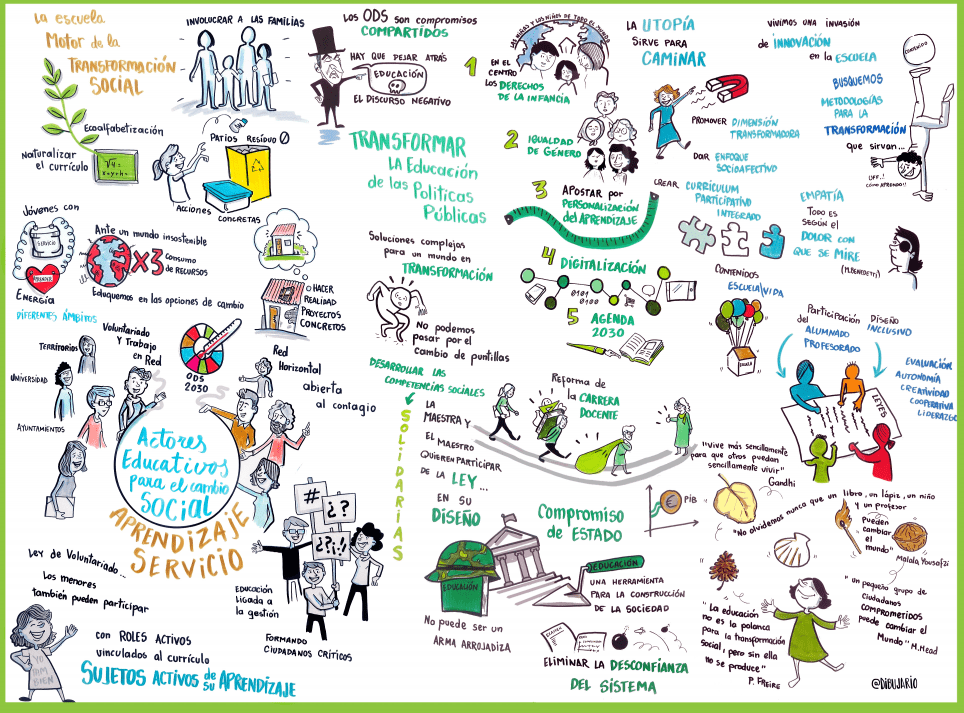 La escuela
Motor de la
TRANSFORMACIÓN
SOCIAL
INVOLUCRAR A LAS FAMILIAS
Ecoalfabetización
Naturalizar
el currículo
PATIOS RESIDUO 0
ACCIONES CONCRETAS
Jóvenes con
SERVICIO
APRENDIZAJE
ENERGÍA
Ante un mundo insostenible
x3 Consumo
de RECURSOS
Eduquemos en las opciones de cambio
o HACER
REALIDAD
PROYECTOS
CONCRETOS
DIFERENTES ÁMBITOS
TERRITORIOS
UNIVERSIDAD
AYUNTAMIENTOS
Voluntariado
y Trabajo
en Red
ODS
2030
Red
Horizontal
abierta
al contagio
Actores
Educativos
para el cambio
SOCIAL
APRENDIZAJE
SERVICIO
#
¿?
¿?¡!
EDUCACIÓN
LIGADA a
la gestión
FORMANDO
CIUDADANOS CRÍTICOS
Ley de Voluntariado...
Los menores
también pueden participar
YO
TAMBIÉN
con ROLES ACTIVOS
vinculados al currículo
SUJETOS ACTIVOS de su APRENDIZAJE
Los ODS son compromisos
COMPARTIDOS
HAY QUE DEJAR ATRÁS
EDUCACIÓN
EL DISCURSO NEGATIVO
TRANSFORMAR
LA Educación
de las Políticas
Públicas
Soluciones complejas
para un mundo en
TRANSFORMACIÓN
No podemos
pasar por el
cambio de puntillas
DESARROLLAR LAS
COMPETENCIAS SOCIALES
SOLIDARIAS
LAS NIÑAS Y LOS NIÑOS DE TODO EL MUNDO
1 EN EL
CENTRO
LOS DERECHOS
DE LA INFANCIA
2 IGUALDAD
DE GÉNERO
3 APOSTAR por
PERSONALIZACIÓN
del APRENDIZAJE
4 DIGITALIZACIÓN
0101
0100
5 AGENDA
2030
LA
MAESTRA Y
EL MAESTRO
QUIEREN PARTICIPAR
DE LA LEY...
EN SU
DISEÑO
Reforma de
la CARRERA
DOCENTE
Compromiso
de ESTADO
€ PIB
EDUCACIÓN
No puede ser un
ARMA ARROJADIZA
EDUCACIÓN
UNA HERRAMIENTA
PARA LA CONSTRUCCIÓN
DE LA SOCIEDAD
ELIMINAR LA DESCONFIANZA
DEL SISTEMA
LA UTOPÍA
SIRVE PARA
CAMINAR
PROMOVER DIMENSIÓN
TRANSFORMADORA
DAR ENFOQUE
SOCIOAFECTIVO
CREAR CURRÍCULUM
PARTICIPATIVO
INTEGRADO
CONTENIDOS
ESCUELA VIDA
ESCUELA
VIVIMOS UNA INVASIÓN
de INNOVACIÓN
en la ESCUELA
BUSQUEMOS
METODOLOGÍAS
PARA LA
TRANSFORMACIÓN
que sirvan...
CONTENIDO
UFF..!
CÓMO APRENDO!!
EMPATÍA
TODO ES
SEGÚN EL
DOLOR CON
QUE SE MIRE
(M.BENEDETTI)
Participación
del ALUMNADO
PROFESORADO
DISEÑO
INCLUSIVO
EVALUACIÓN
AUTONOMÍA
CREATIVIDAD
COOPERATIVA
LIDERAZGO
LEYES
"Vive más sencillamente
para que otros puedan
sencillamente vivir"
Gandhi
"No olvidemos nunca que un libro, un lápiz, un niño
y un profesor
pueden
cambiar
el
mundo"
Malala Yousafzi
"La educación
no es la palanca
para la transformación
social, pero sin ella
no se produce"
P. FREIRE
"un pequeño grupo de
ciudadanos
COMPROMETIDOS
puede cambiar el
Mundo" M.Mead
@DIBUJARIO